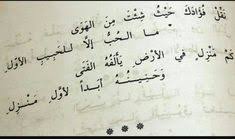 نَقِّلْ فُؤَادَكَ حَيْثُ شِئْتَ مِنَ الهَوَى
مَا الحُبُّ إِلَّا لِلحَبِيبِ الأَوَّلِ
كَمْ مَنْزِلٍ فِي الأَرْضِ يَأْلَفُهُ الفَتَى
وَحَنِينُهُ أَبَداً لِأَوَّلِ مَنْزِلِ